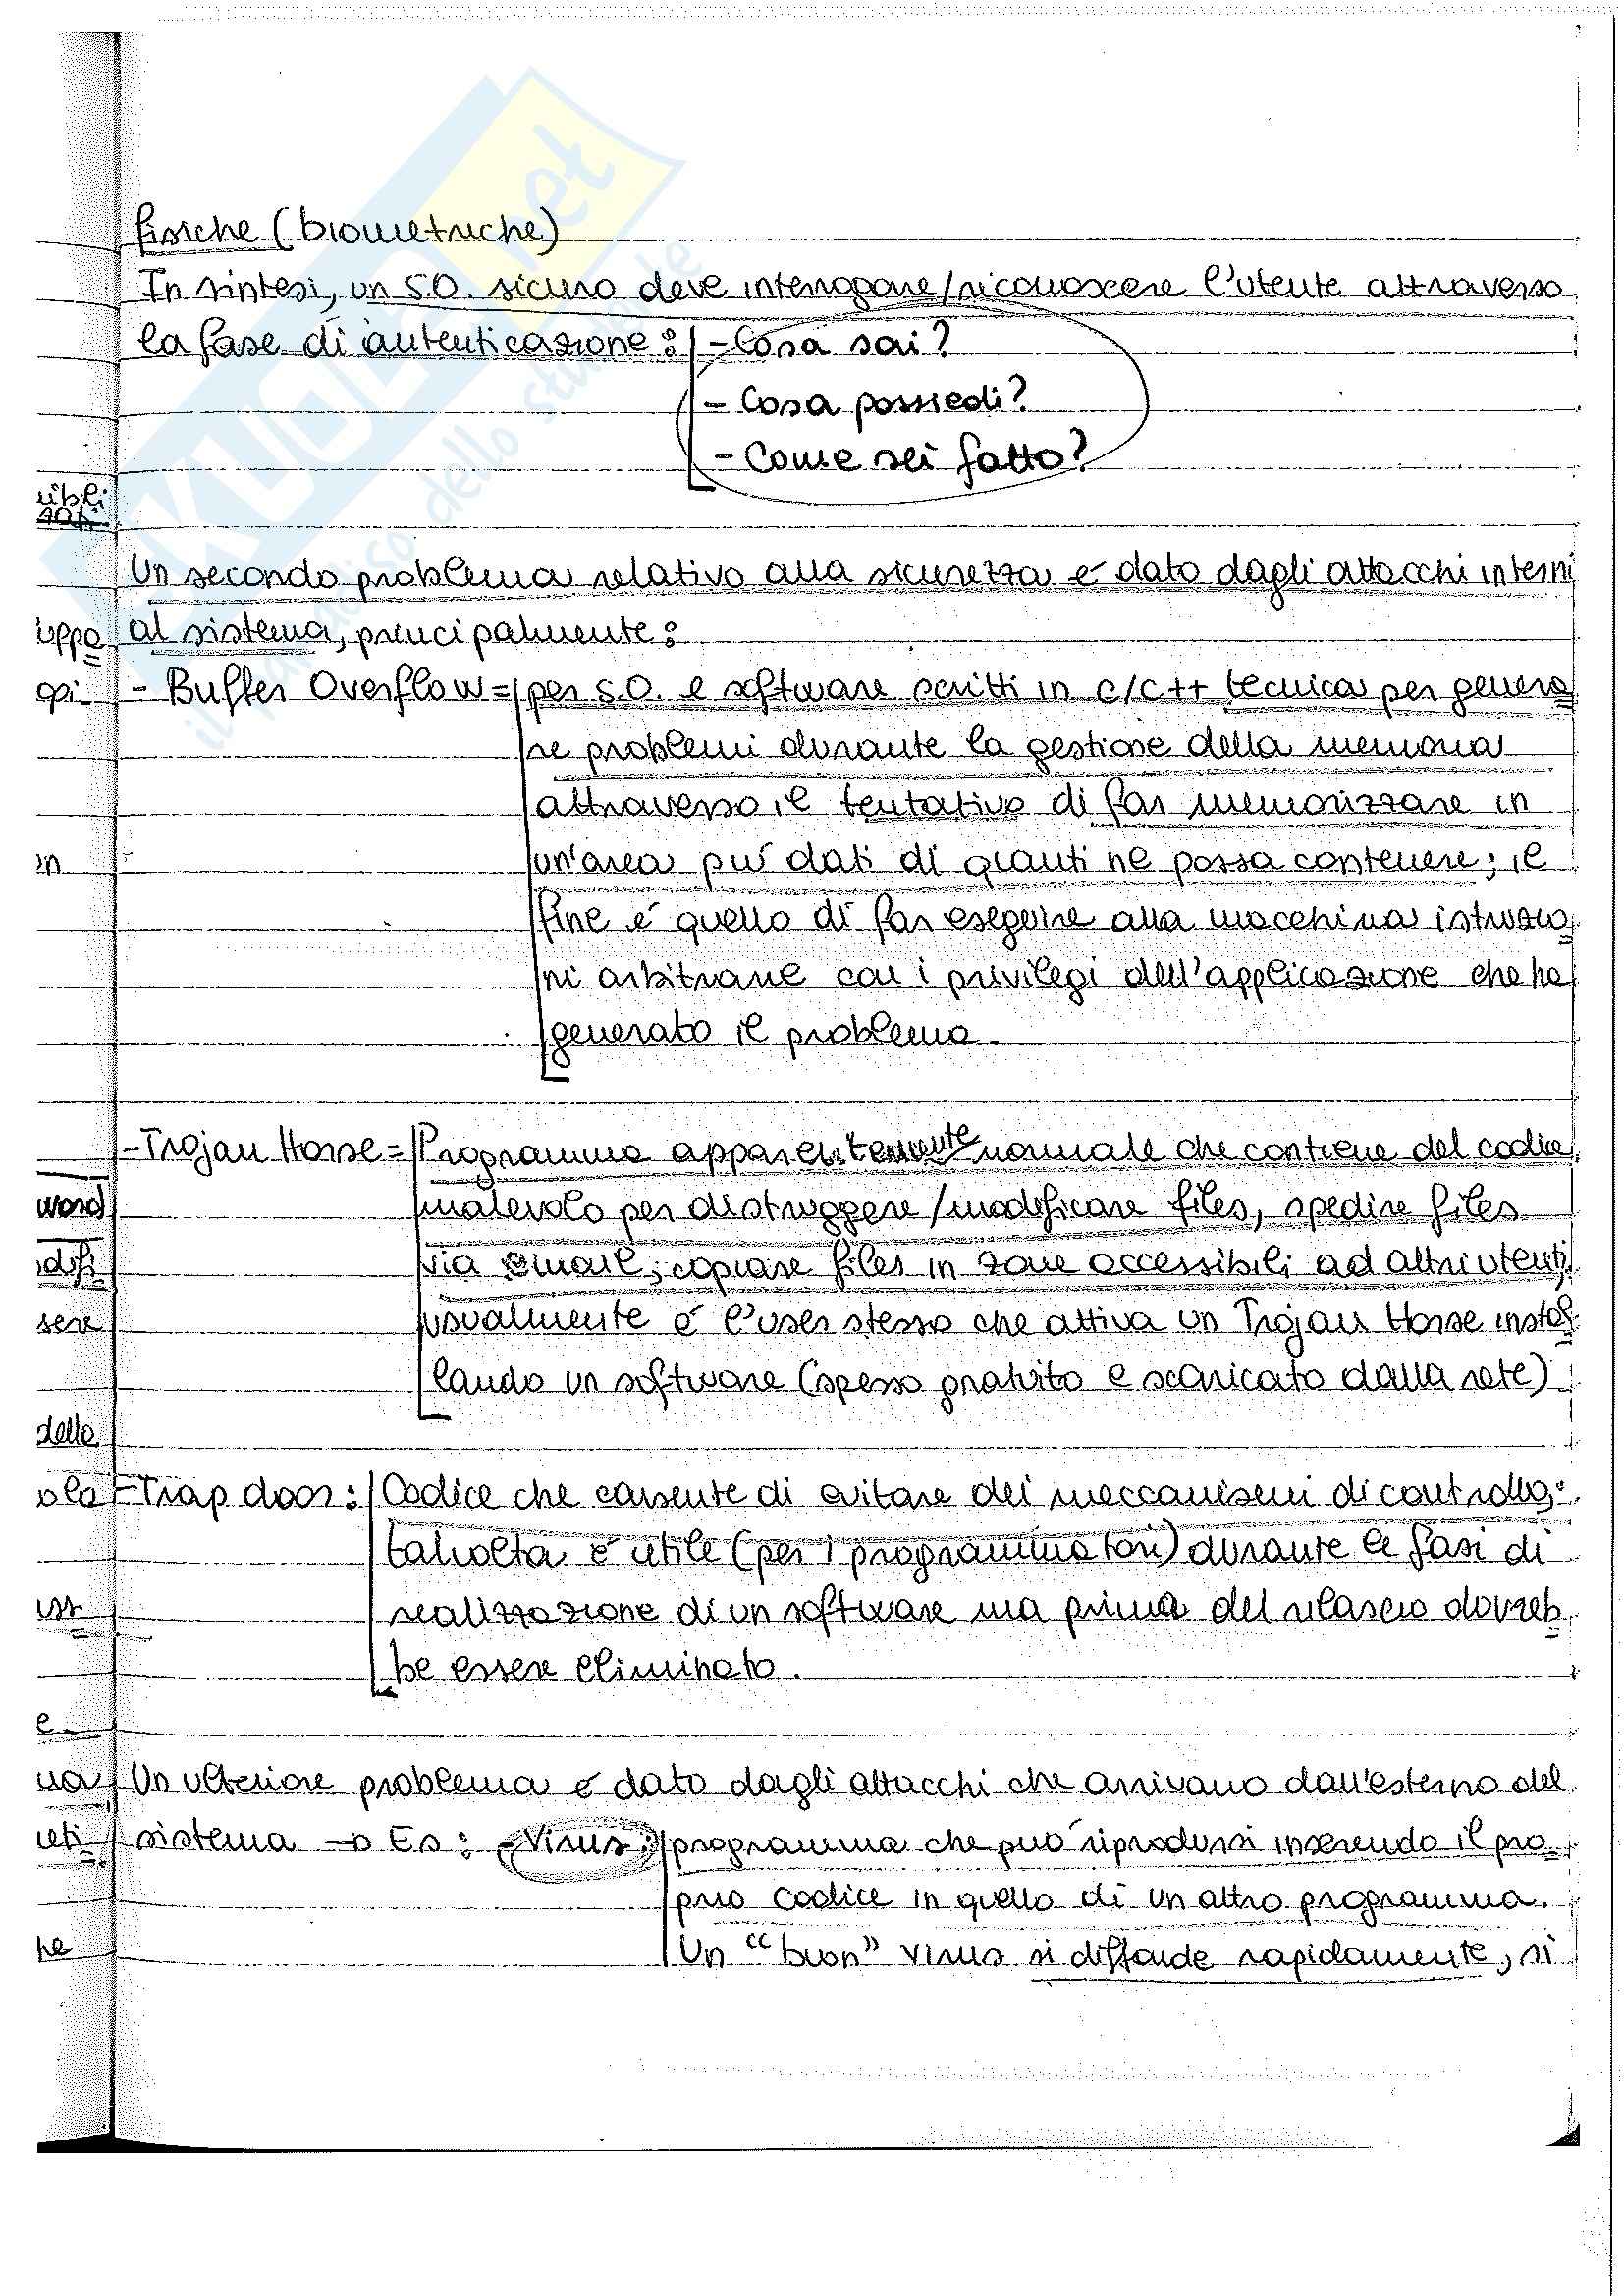 fisiche (biometriche)
In sintesi, un S.O. sicuro deve interrogare/riconoscere l'utente attraverso
la fase di autenticazione: - Cosa sai?
- Cosa possiedi?
- Come sei fatto?
Un secondo problema relativo alla sicurezza é dato dagli attacchi interni
al sistema, principalmente:
- Buffer Overflow = per S.O. e software scritti in C/C++ tecnica per genera
re problemi durante la gestione della memoria
attraverso il tentativo di far memorizzare in
un'area piú dati di quanti ne possa contenere; il
fine é quello di far eseguire alla macchina istruzio
ni arbitrarie con i privilegi dell'applicazione che ha
generato il problema.
- Trojan Horse = Programma apparentemente normale che contiene del codice
malevolo per distruggere/modificare files, spedire files
via email, copiare files in zone accessibili ad altri utenti
usualmente é l'user stesso che attiva un Trojan Horse instal
lando un software (spesso gratuito e scaricato dalla rete)
- Trap door: Codice che consente di evitare dei meccanismi di controllo;
talvolta é utile (per i programmatori) durante le fasi di
realizzazione di un software ma prima del rilascio dovreb
be essere eliminato.
Un ulteriore problema é dato dagli attacchi che arrivano dall'esterno del
sistema → Es: - Virus: programma che può riprodursi inserendo il pro
prio codice in quello di un altro programma.
Un "buon" virus si diffonde rapidamente, si
word
sere
della